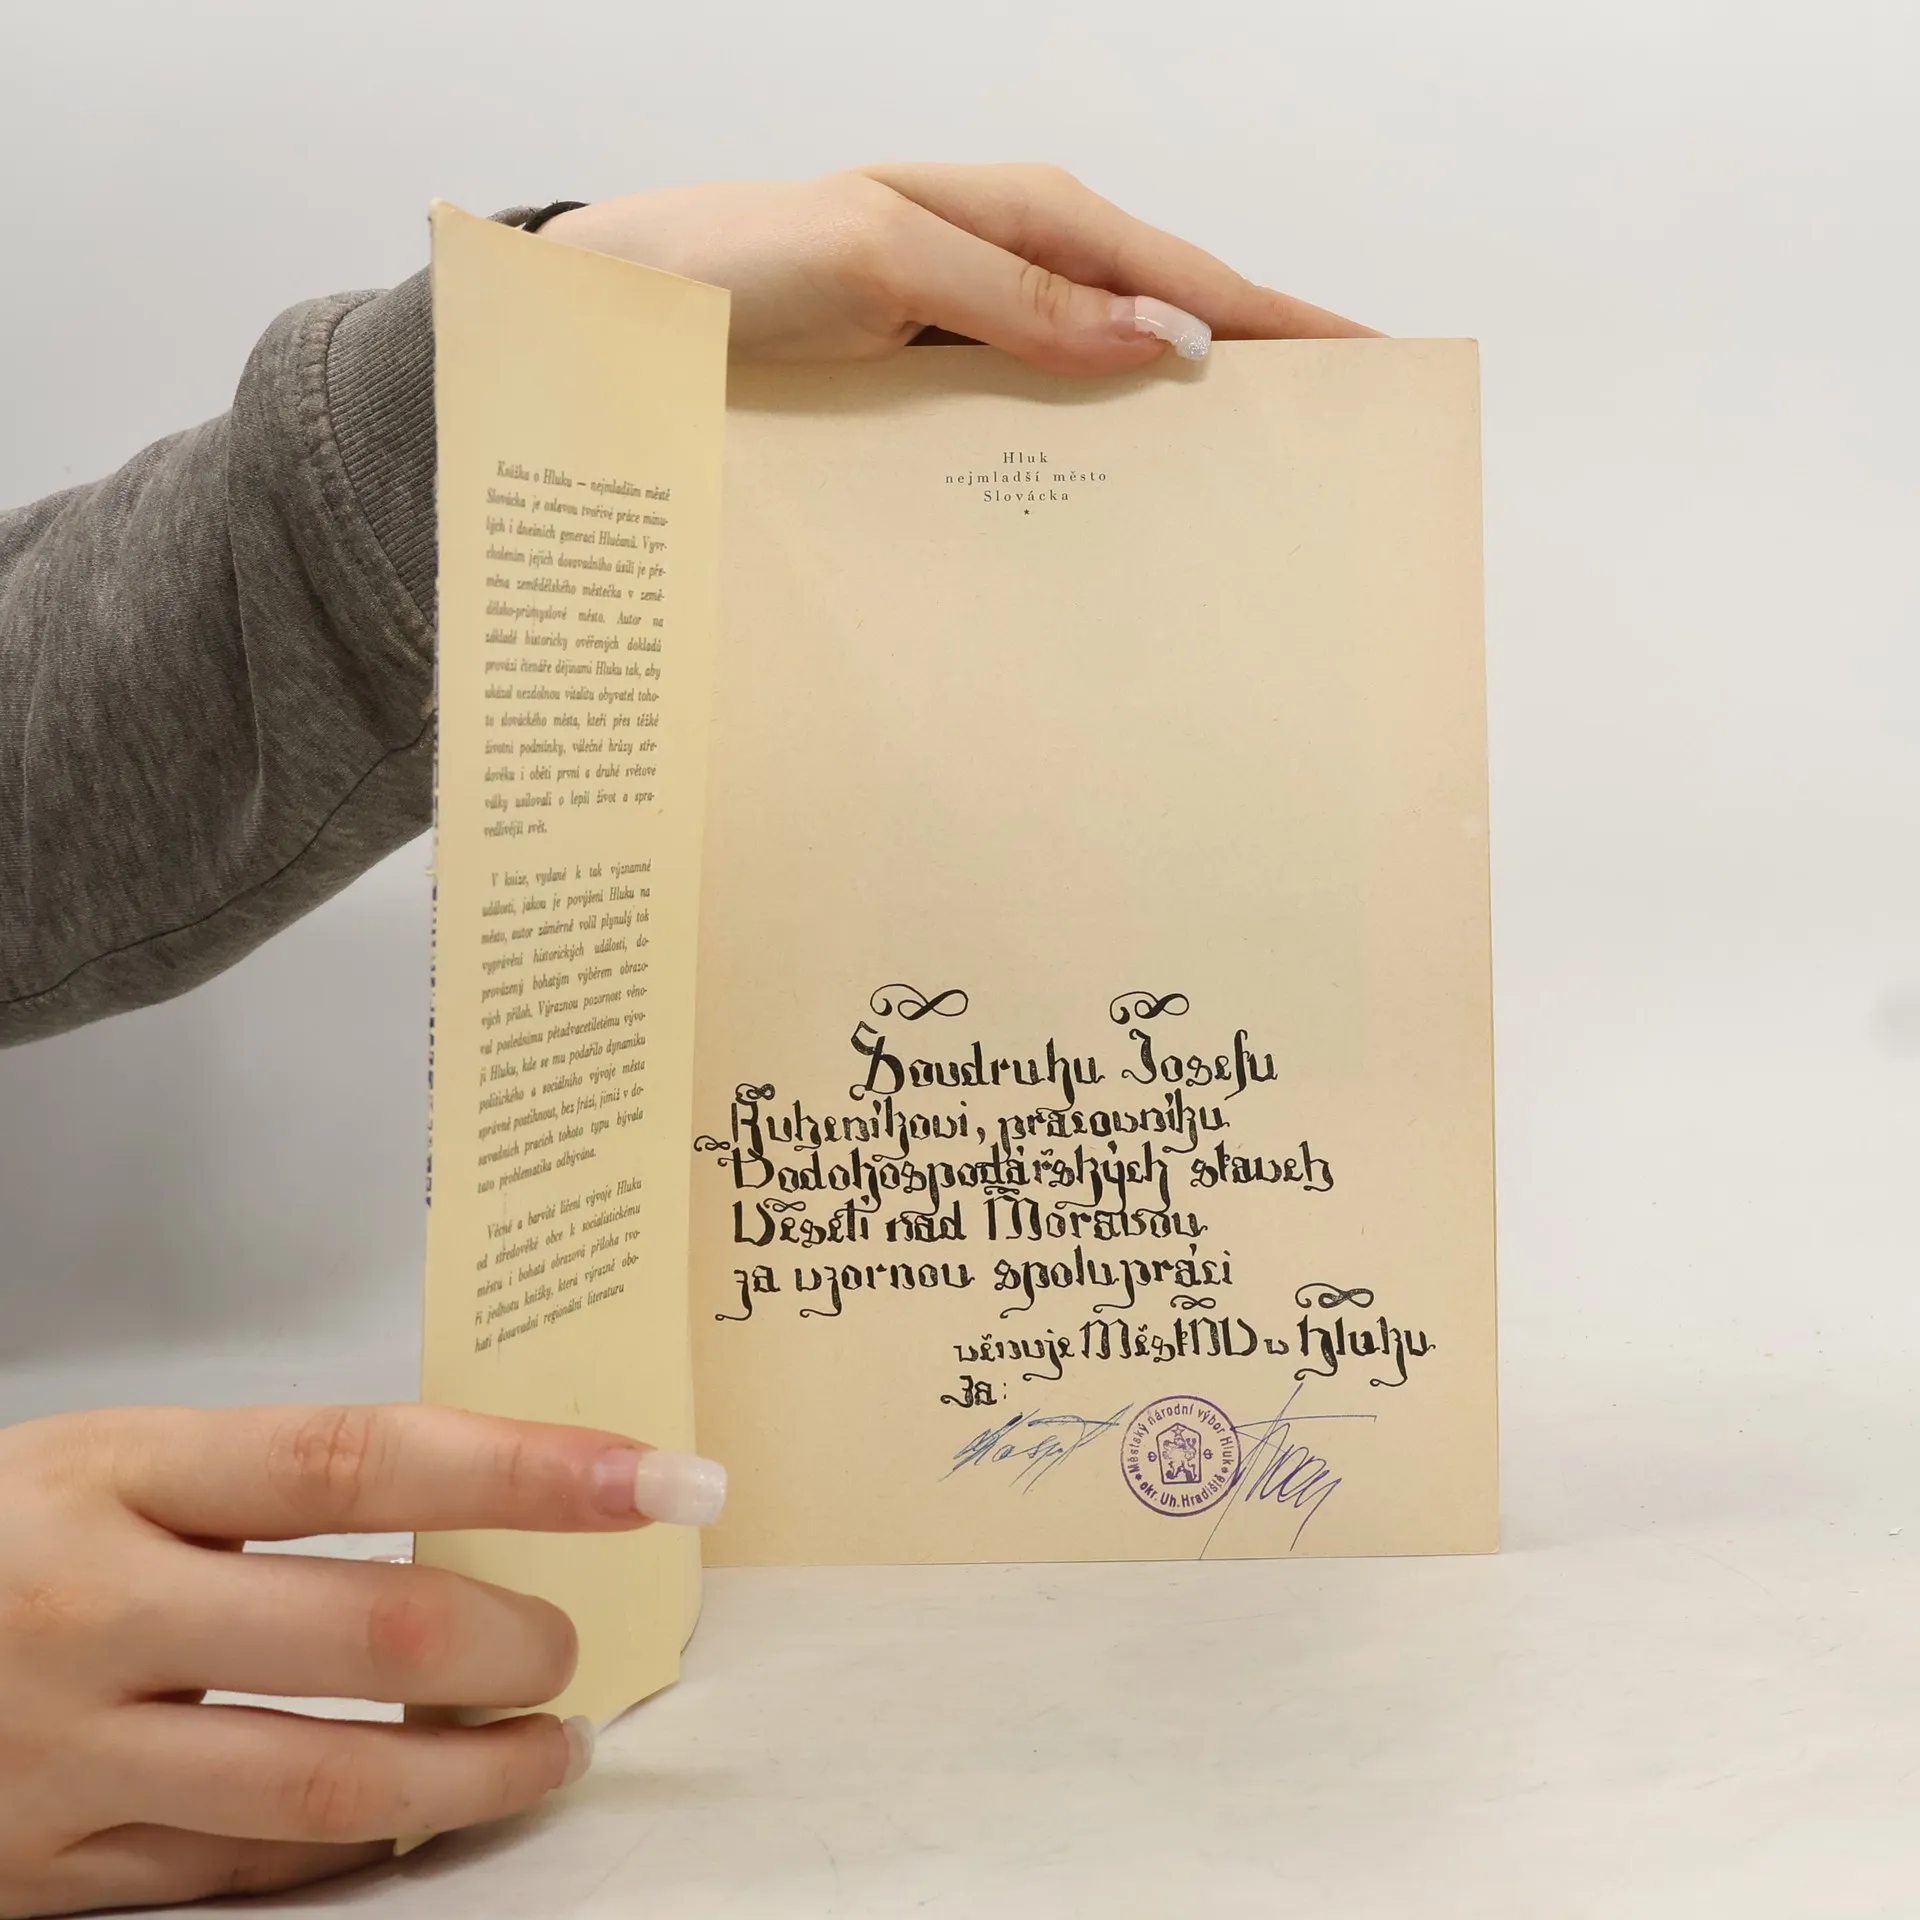 Knížka o Hluku — nejmladším městě
Slovácka je oslavou tvořivé práce minu-
lých i dnešních generací Hlučanů. Vyvr-
cholením jejich dosavadního úsilí je pře-
měna zemědělského městečka v země-
dělsko-průmyslové město. Autor na
základě historicky ověřených dokladů
provází čtenáře dějinami Hluku tak, aby
ukázal nezdolnou vitalitu obyvatel toho-
to slováckého města, kteří přes těžké
životní podmínky, válečné hrůzy stře-
dověku i oběti první a druhé světové
války usilovali o lepší život a spra-
vedlivější svět.
V knize, vydané k tak významné
události, jakou je povýšení Hluku na
město, autor záměrně volil plynulý tok
vyprávění historických událostí, do-
provázený bohatým výběrem obrazo-
vých příloh. Výraznou pozornost věno-
val poslednímu pětadvacetiletému vývo-
ji Hluku, kde se mu podařilo dynamiku
politického a sociálního vývoje města
správně postihnout, bez frází, jimiž v do-
savadních pracích tohoto typu bývala
tato problematika odbývána.
Věcné a barvité líčení vývoje Hluku
od středověké obce k socialistickému
městu i bohatá obrazová příloha tvo-
ří jednotu knížky, která výrazně obo-
hatí dosavadní regionální literaturu
Hluk
nejmladší město
Slovácka
*
Soudruhu Josefu
Kubeníkovi, pracovníku
Vodohospodářských staveb
Veselí nad Moravou
za vzornou spolupráci
věnuje MěstNV v Hluku
Za:
Městský národní výbor Hluk
okr. Uh. Hradiště